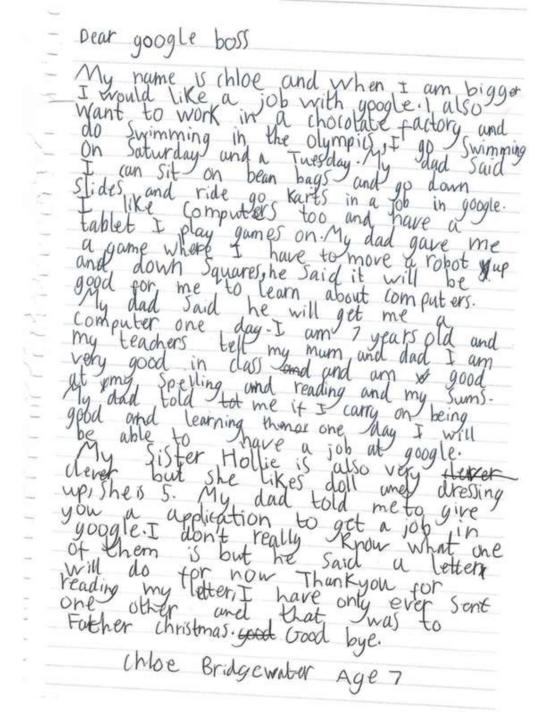 Dear google boss
My name is chloe and when I am bigger
I would like a job with google. I also
want to work in a chocolate factory and
do swimming in the olympics, I go Swimming
On Saturday and a Tuesday. My dad said
I can sit on bean bags and go down
slides and ride go karts in a job in google.
I like computers too and have a
tablet I play games on. My dad gave me
a game where I have to move a robot up
and down squares, he said it will be
good for me to learn about computers.
My dad said he will get me a
computer one day. I am 7 years old and
my teachers tell my mum and dad I am
very good in class and and am good
at my spelling and reading and my sums.
My dad told me if I carry on being
good and learning one day I will
be able to have a job at google.
My Sister Hollie is also very clever
clever but she likes doll and dressing
up, She is 5. My dad told me to give
you a application to get a job in
google. I don't really know what one
of them is but he said a letter
will do for now Thankyou for
reading my letter, I have only ever sent
one other and that was to
Father christmas. good Good bye.
Chloe Bridgewater Age 7